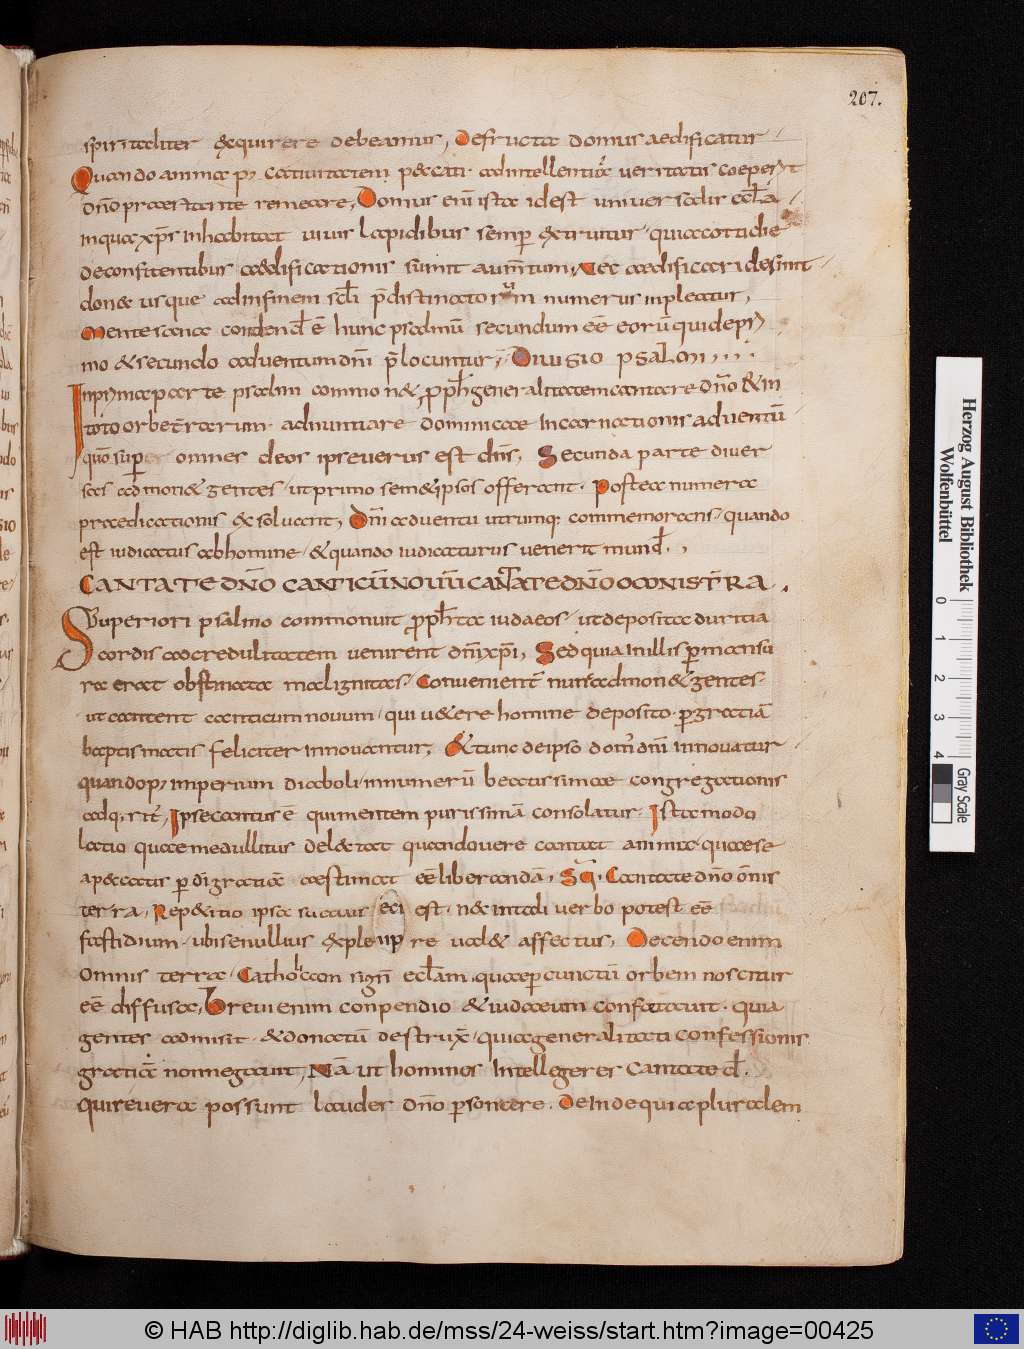 207.
spiritaliter exquirere debeamus, De structa domus aedificatur
Quando animae p; captivitatem peccati ad intellentiā veritatis coeperit
dno praestante remeare, Domus eni ista idest universalis eccla
in qua xps inhabitat vivis lapidibus semper extruitur quia cottidie
de confitentibus aedificationis sumit aumtum, Nec aedificari desinit
donec usque ad infinem scli pdistinatorum numerus inpleatur,
Mente sana condend ē hunc psalmū secundum eē eorū qui de pri
mo et secundo adventum dni plocuntur, Divisio psalmi
In prima parte psalmi commonet pphe generalitatem cantare dno et in
toto orbe trarum adnuntiare dominicae incarnationis adventū
quo super omnes deos ipse verus est dns, Secunda parte diver
sas admonet gentes ut primo semetipsos offerant. Postea numera
praedicationis exsolvant, Dni adventu utrumq; commemorans quando
est iudicatus ab homine et quando iudicaturus venerit mund.
CANTATE DNO CANTICŪ NOVŪ CANTATE DNO OMNIS TRA.
Superiori psalmo commonuit pphta iudaeos ut deposita duritia
cordis ad credulitatem venirent dni xpi, Sed quia in illis pmansu
ra erat obstinata malignitas, Convenient nunc admonet gentes
ut cantent canticum novum qui vetere homine deposito p gratiā
baptismatis feliciter innovantur, Et tunc de ipso dom dni innovatur
quando p; imperium diaboli innumerū beatissimae congregationis
adq,rit, Ipse cantus ē qui mentem purissimā consolatur. Ista modo
latio quae medullitus delectat quando vere cantat anima quae se
a peccatis p di gratia aestimat eē liberandā, Sq Cantate dno omis
terra, Repetitio ipsa suavis eci est nec in tali verbo potest eē
fastidium ubi senullius exple up re valet affectus, Decendo enim
Omnis terra Catholicam sign eclam quae percunctū orbem noscitur
eē diffusa, Brevi enim conpendio et iudaeum confutavit quia
gentes admisit et donatū destrux quia generalitati confessionis
gratiā non negavit, Nā ut homines Intellegeres Cantate d.
qui revera possunt laudes dno psonere. De Inde quia pluralem
Herzog August Bibliothek
Wolfenbüttel
0 1 2 3 4
Gray Scale
© HAB http://diglib.hab.de/mss/24-weiss/start.htm?image=00425